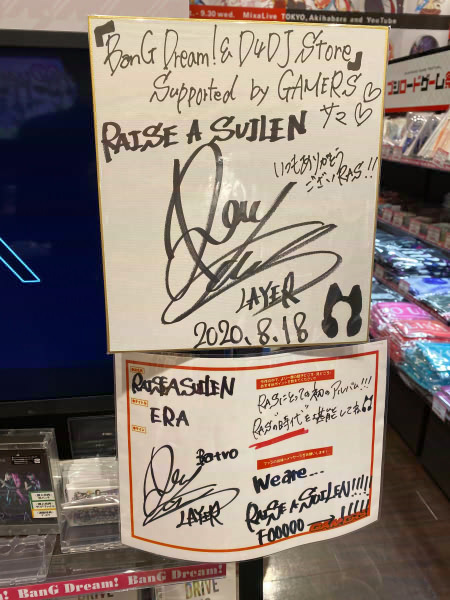 . - 9.30 wed. MixaLive TOKYO, Akihabara and YouTube
『BanG Dream! & D4DJ Store
Supported by GAMERS』
サマ♡♡
RAISE A SUILEN
いつもありがとう
ございRAS!!
LAYER
2020.8.18
RAISE A SUILEN
ERA
Ba+vo
LAYER
RASにとっての初のアルバム!!!
RASの"時代"を堪能してね
We are...
RAISE A SUILEN!!!!
FOOOOO→!!!!!
BanG Dream! BanG Dream!
DRIVE